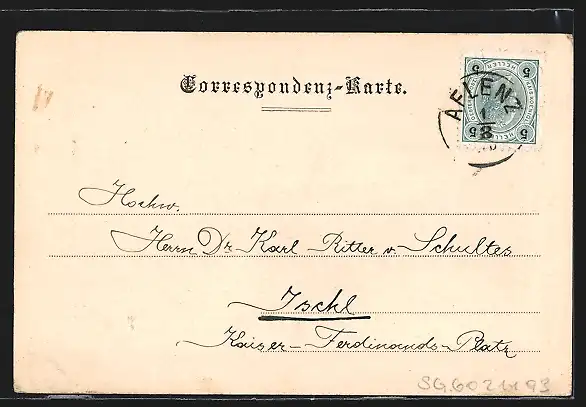 Correspondenz-Karte.
5 5
HELLER HELLER
5 5
AFLENZ
1
8
Hochw.
Herrn Dr Karl Ritter v. Schultes
Ischl
Kaiser-Ferdinands-Platz